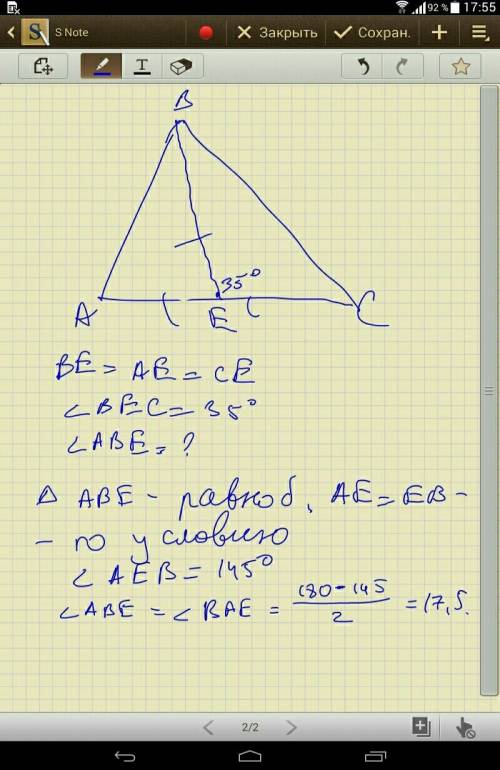 92 % 17:55
S Note Закрыть Сохран.
T
B
35°
A E C
BE = AE = CE
∠BEC = 35°
∠ABE = ?
Δ ABE - равноб, AE = EB -
- по условию
∠AEB = 145°
∠ABE = ∠BAE = (180 - 145)/2 = 17,5.
2/2